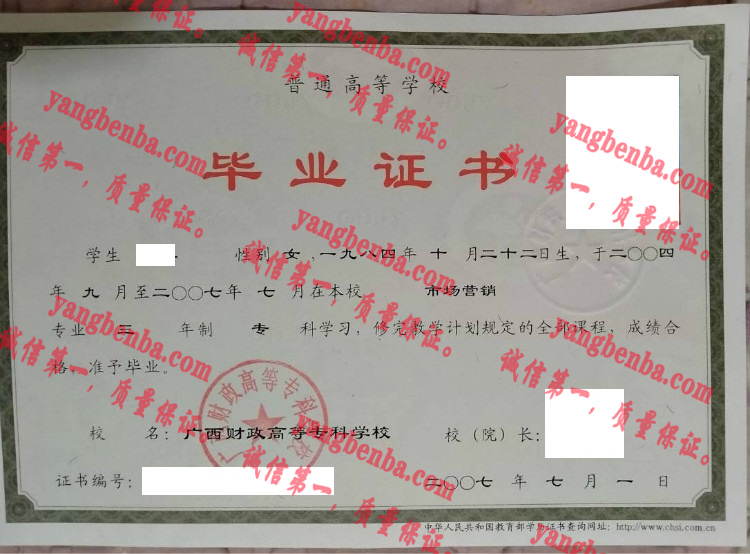 普通高等学校
毕业证书
学生 性别 女 ,一九八四年 十 月二十二日生，于二〇〇四
年 九 月至二〇〇七年 七 月在本校 市场营销
专业 三 年制 专 科学习，修完教学计划规定的全部课程，成绩合
格，准予毕业。
校 名：广西财政高等专科学校 校（院）长：
证书编号： 二〇〇七 年 七 月 一 日
中华人民共和国教育部学历证书查询网址：http://www.chsi.com.cn
广西财政高等专科学校
yangbenba.com
诚信第一，质量保证。
yangbenba.com
诚信第一，质量保证。
yangbenba.com
诚信第一，质量保证。
yangbenba.com
诚信第一，质量保证。
yangbenba.com
诚信第一，质量保证。
yangbenba.com
诚信第一，质量保证。
yangbenba.com
诚信第一，质量保证。